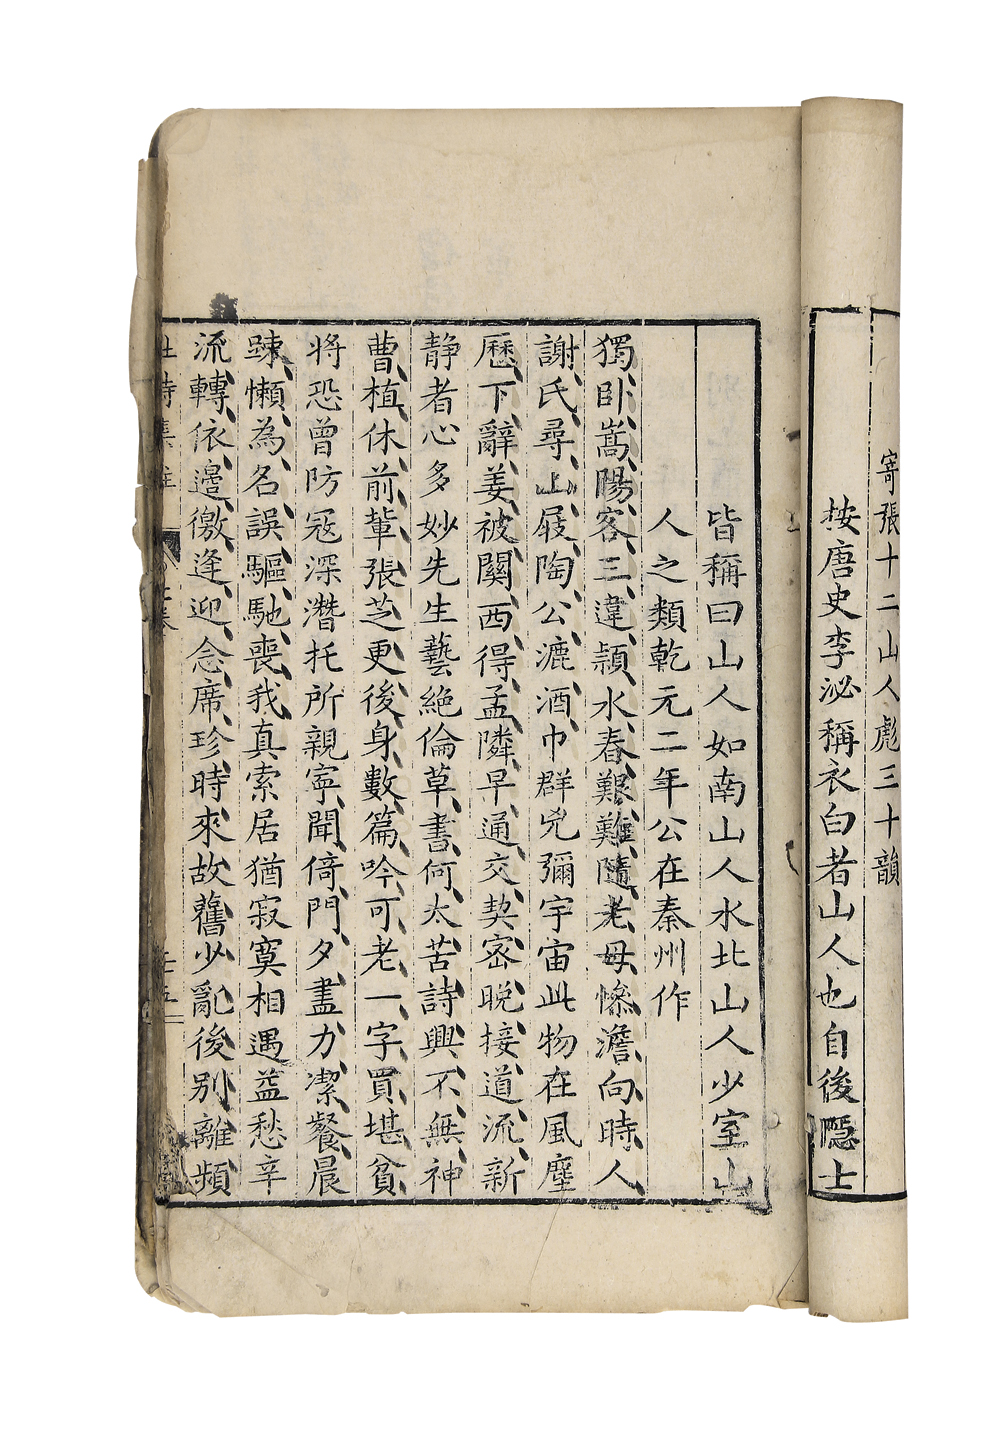 寄張十二山人彪三十韻
按唐史李泌稱衣白者山人也自後隠士
皆稱曰山人如南山人水北山人少室山
人之類乾元二年公在秦州作
獨卧嵩陽客三違頴水春艱難隨老母惨澹向時人
謝氏尋山屐陶公漉酒巾群兇彌宇宙此物在風塵
歷下辭姜被關西得孟隣早通交契密晚接道流新
静者心多妙先生藝絶倫草書何太苦詩興不無神
曹植休前輩張芝更後身數篇吟可老一字買堪貧
將恐曾防冦深潛托所親寧聞倚門夕盡力潔餐晨
踈懶為名誤驅馳喪我真索居猶寂寞相遇益愁辛
流轉依邉徼逢迎念席珍時來故舊少亂後别離頻
杜詩集註